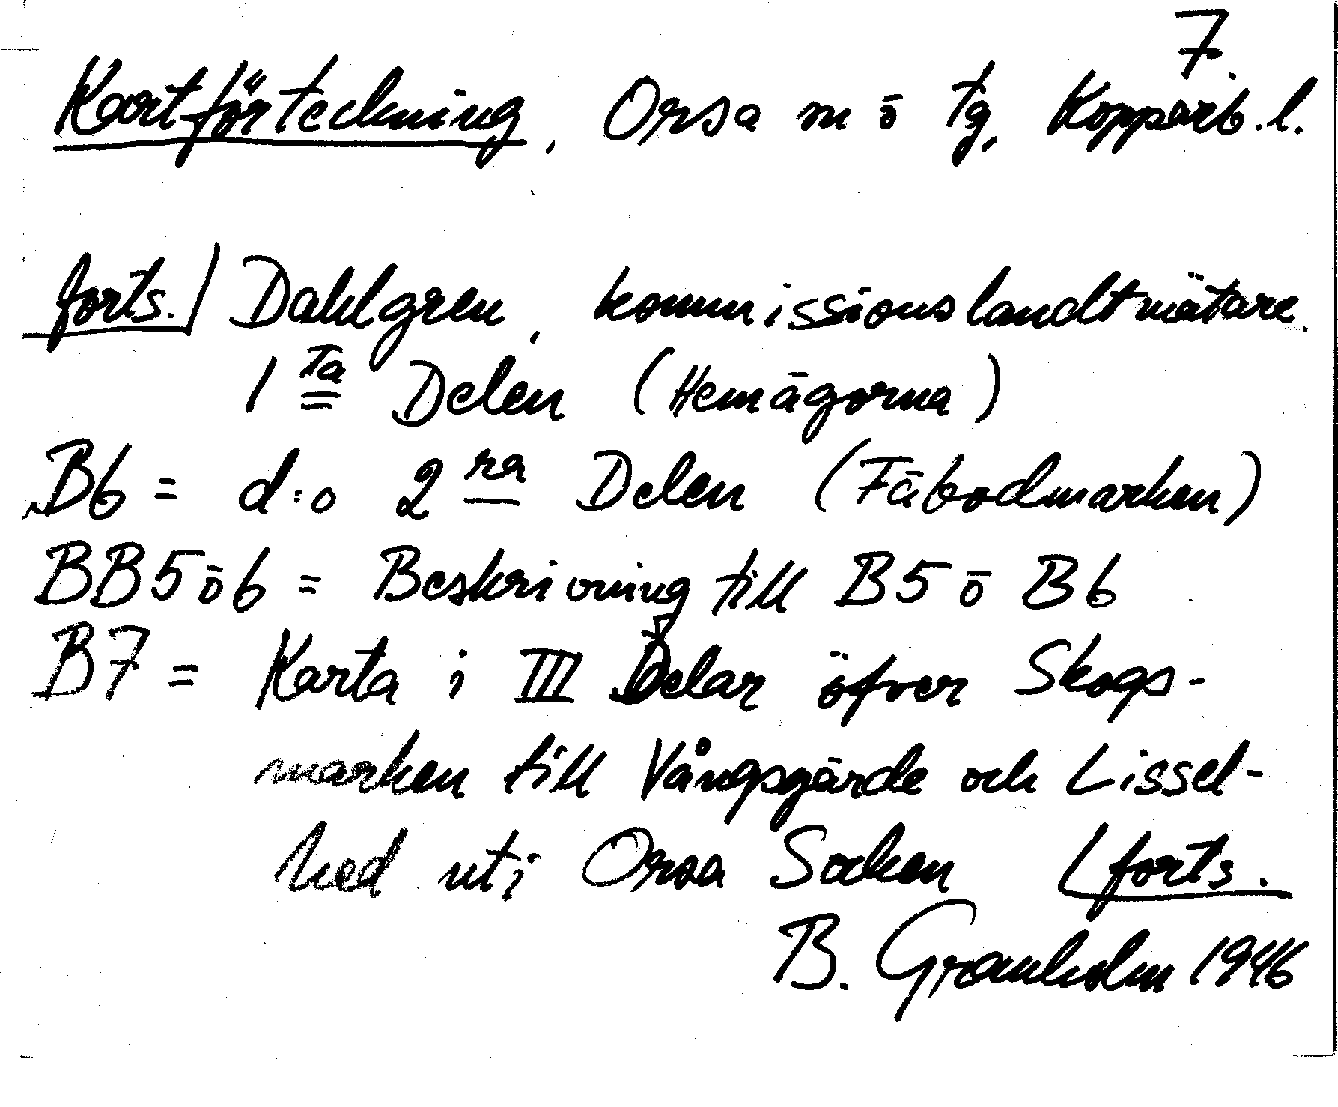 7.
Kartförteckning, Orsa m ö tg, Kopparb. l.
forts./ Dahlgren, kommissionslandtmätare.
1ta Delen (Hemägorna)
B6 = d:o 2ra Delen (Fäbodmarken)
BB5ö6 = Beskrivning till B5 ö B6
B7 = Karta i III Delar öfver Skogs-
marken till Vångsgärde och Lissel-
hed uti Orsa Socken /forts.
B. Granholm 1946